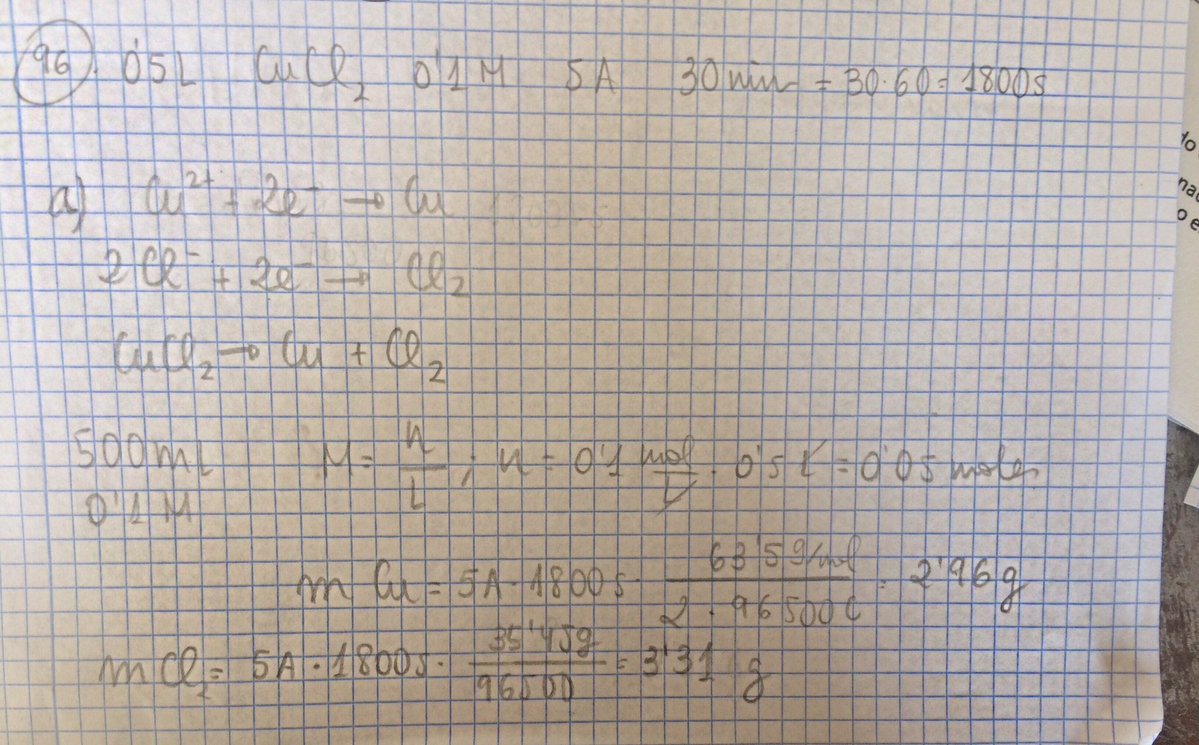 96. 0'5L CuCl₂ 0'1M 5A 30min = 30·60 = 1800s
a) Cu²⁺ + 2e⁻ → Cu
2Cl⁻ + 2e⁻ → Cl₂
CuCl₂ → Cu + Cl₂
500ml M = n/L ; n = 0'1 mol/L · 0'5 L = 0'05 moles
0'1 M
m Cu = 5A · 1800s · 63'5g/mol / 2 · 96500C = 2'96 g
m Cl₂ = 5A · 1800s · 35'45g / 96500 = 3'31 g
do
nac
o e